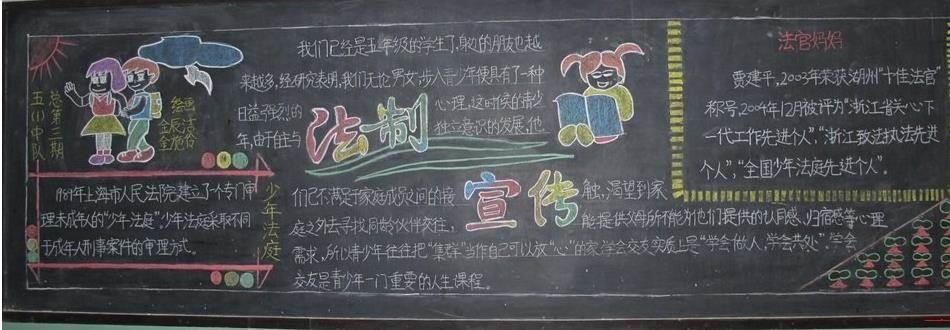 五(1)中队
总第三期
绘画
1987年上海市人民法院建立了个专门审
理未成年人的“少年法庭”。少年法庭采取不同
于成年人刑事案件的审理方式。
少年法庭
法制
宣传
我们已经是五年级的学生了,身边的朋友也越
来越多,经研究表明,我们无论男女,步入青少年便具有了一种
日益强烈的
心理,这时候的青少
年,由于住与
独立意识的发展,他
们已不满足于家庭成员之间的接
触,渴望到家
庭之外去寻找同龄伙伴交往,
能提供父母所不能为他们提供的认同感、归宿感等心理
需求,所以青少年往往把“集群”当作自己可以放“心”的家,学会交友实质上是“学会做人,学会共处”,学会
交友是青少年一门重要的人生课程。
法官妈妈
贾建平,2003年荣获湖州“十佳法官”
称号,2004年12月被评为“浙江省关心下
一代工作先进个人”,“浙江政法执法先进
个人”,“全国少年法庭先进个人”。